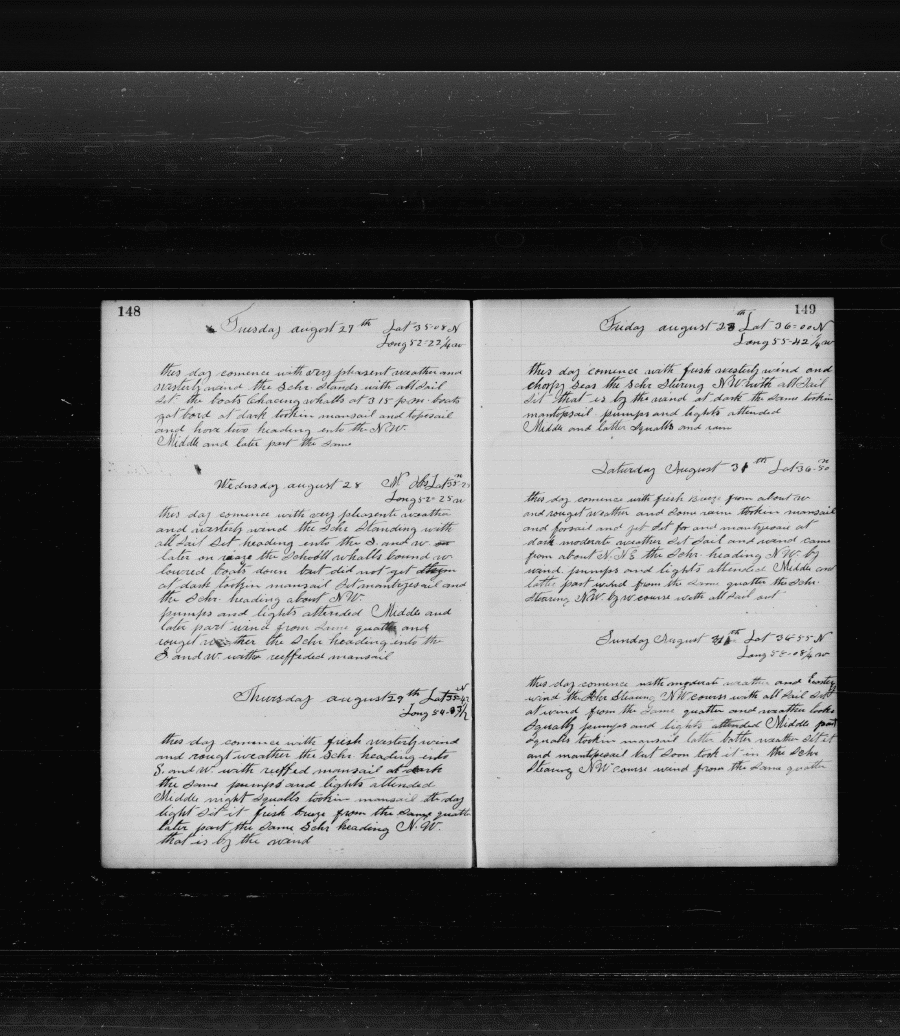 148
Tuesday august 27 th Lat 35-08 N
Long 52-22 1/4 w
this day comence with very plesent weather and
westerly wind the Schr Stands with all Sail
Set the boats Chacing whalls at 3 15 p.m. boats
got bord at dark tookin mansail and topsail
and hove two heading into the N.W.
Middle and later part the Same
Wednsday august 28
Long 52-25 w
this day comence with very plesent weather
and westerly wind the Schr Standing with
all Sail Set heading into the S. and w.
later on the whalls bound w
lowred boats down but did not get
at dark tookin mansail Set and
the Schr heading about N.W.
pumps and lights attended Middle and
later part wind from Same quatter and
rouget weather the Schr heading into the
S. and W. with reffeded mansail
Thursday august 29 th Lat
Long 54
this day comence with fresh westerly wind
and rouget weather the Schr heading into
S. and W. with reffed mansail at dark
the Same pumps and lights attended
Middle night Squalls tookin mansail at day
light Set it fresh breeze from the Same quatter
later part the Same Schr heading N.W.
that is by the wind
149
Friday august th Lat 36-00 N
Long 55-42 1/4 w
this day comence with fresh westerly wind and
chorpy Seas the Schr Stering N.W. with all Sail
Set that is by the wind at dark the Same tookin
mantopsail pumps and lights attended
Middle and latter Squalls and rain
Saturday August 31 th Lat 36-50 N
this day comence with fresh breeze from about w
and rouget weather and Some rain tookin mansail
and forsail and jet Set for and at
dark moderate weather Set Sail and wind came
from about N.N.E. the Schr heading N.W. by
wind pumps and lights attended Middle and
latter part wind from the Same quatter the Schr
Stearing N.W. by w course with all Sail out
Sunday August 31 th Lat 36-55 N
Long
this day comence with moderate weather and Easterly
wind the Schr Stearing N.W. course with all Sail Set
at wind from the Same quatter and weather looks
Squally pumps and lights attended Middle part
Squalls tookin mansail latter batter weather Set it
and mantopsail but Soon took it in the Schr
Stearing N.W. course wind from the Same quatter